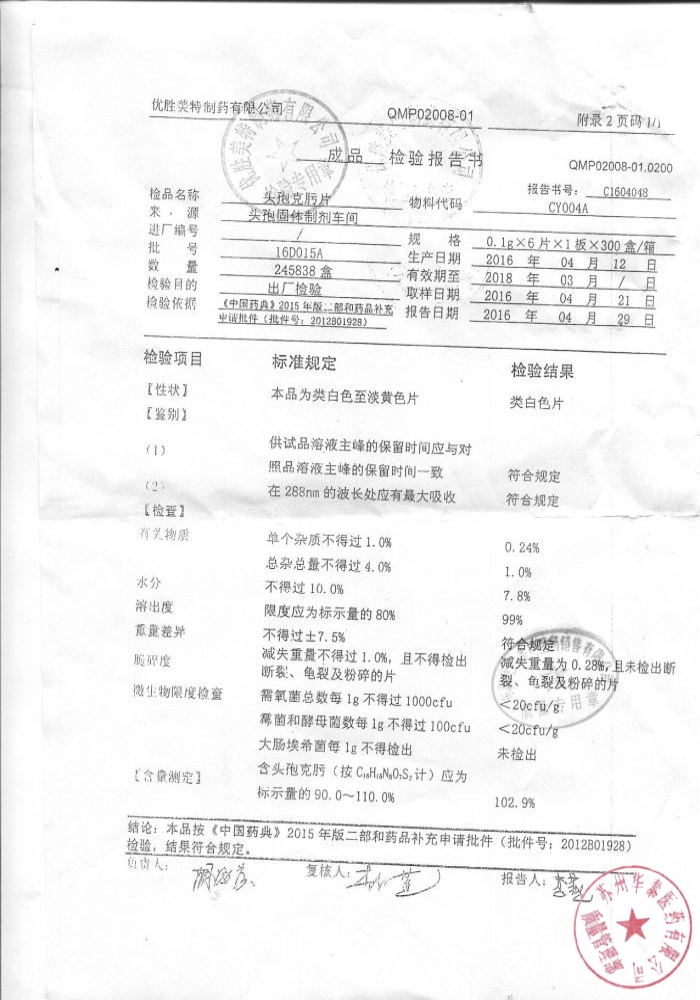 优胜美特制药有限公司
QMP02008-01
附录 2 页码 1/1
成品 检验报告书
QMP02008-01.0200
报告书号： C1604048
检品名称 头孢克肟片 物料代码 CY004A
来 源 头孢固体制剂车间
进厂编号 / 规 格 0.1g×6 片×1 板×300 盒/箱
批 号 16D015A 生产日期 2016 年 04 月 12 日
数 量 245838 盒 有效期至 2018 年 03 月 / 日
检验目的 出厂检验 取样日期 2016 年 04 月 21 日
检验依据 《中国药典》2015 年版二部和药品补充 报告日期 2016 年 04 月 29 日
申请批件（批件号：2012B01928）
检验项目 标准规定 检验结果
【性状】 本品为类白色至淡黄色片 类白色片
【鉴别】
（1） 供试品溶液主峰的保留时间应与对
照品溶液主峰的保留时间一致 符合规定
（2） 在 288nm 的波长处应有最大吸收 符合规定
【检查】
有关物质 单个杂质不得过 1.0% 0.24%
总杂总量不得过 4.0% 1.0%
水分 不得过 10.0% 7.8%
溶出度 限度应为标示量的 80% 99%
重量差异 不得过±7.5% 符合规定
脆碎度 减失重量不得过 1.0%，且不得检出 减失重量为 0.28%,且未检出断
断裂、龟裂及粉碎的片 裂、龟裂及粉碎的片
微生物限度检查 需氧菌总数每 1g 不得过 1000cfu <20cfu/g
霉菌和酵母菌数每 1g 不得过 100cfu <20cfu/g
大肠埃希菌每 1g 不得检出 未检出
【含量测定】 含头孢克肟（按 C₁₆H₁₅N₅O₇S₂计）应为
标示量的 90.0～110.0% 102.9%
结论：本品按《中国药典》2015 年版二部和药品补充申请批件（批件号：2012B01928）
检验，结果符合规定。
负责人： 复核人： 报告人：
苏州华泰医药有限公司
质量管理部